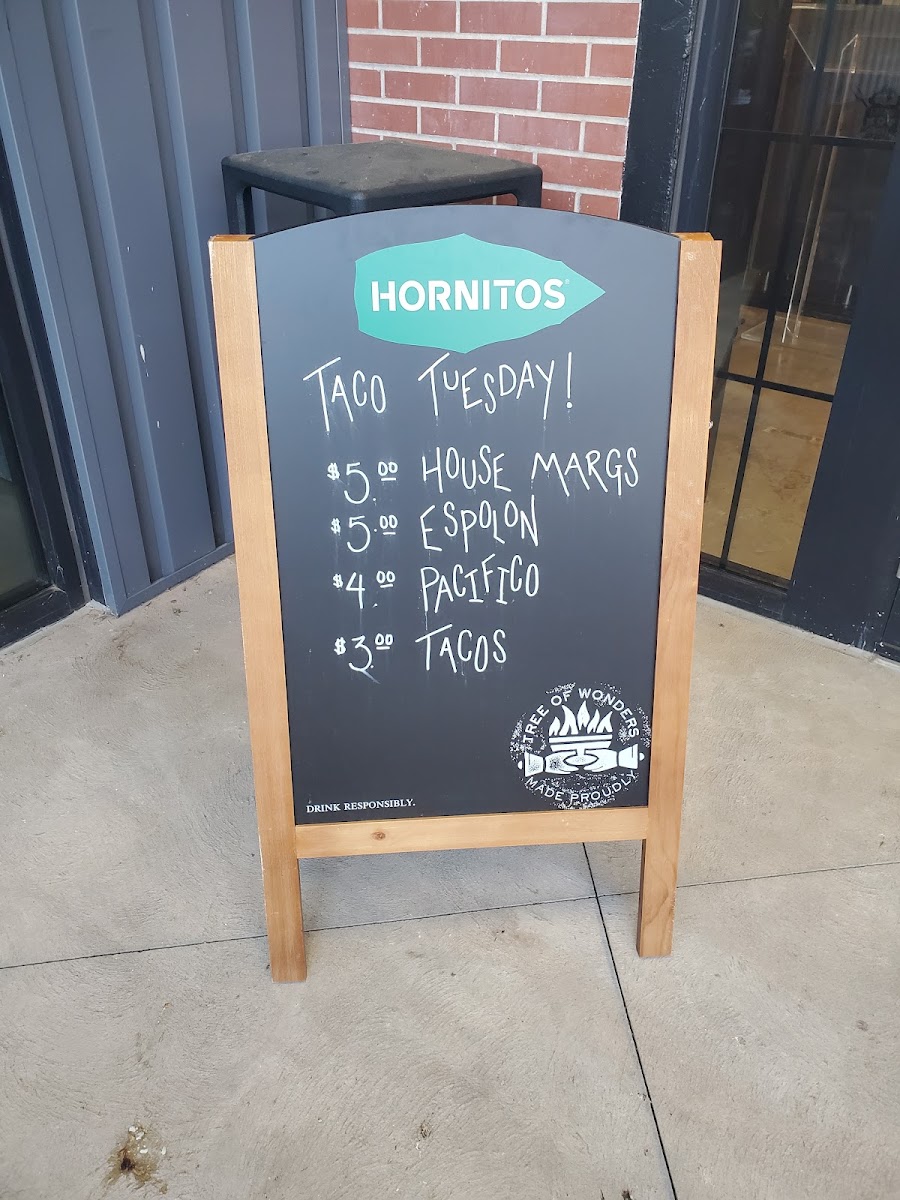 HORNITOS®
TACO TUESDAY!
$5.00 HOUSE MARGS
$5.00 ESPOLON
$4.00 PACIFICO
$3.00 TACOS
TREE OF WONDERS
MADE PROUDLY
DRINK RESPONSIBLY.